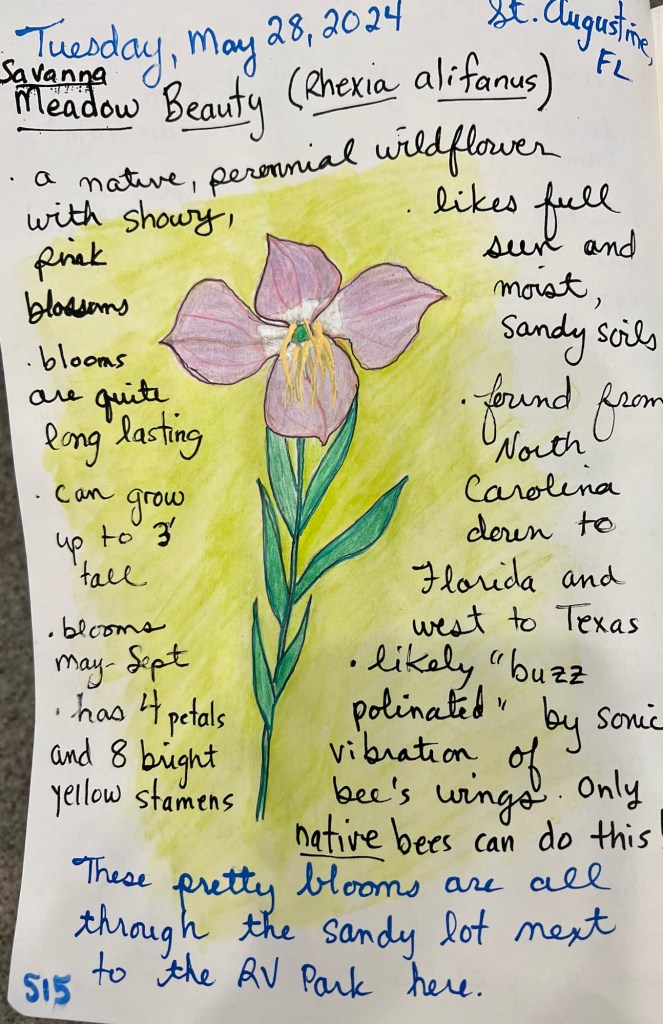 Tuesday, May 28, 2024
St. Augustine,
FL
Savanna
Meadow Beauty (Rhexia alifanus)
· a native, perennial wildflower
with showy,
pink
blossoms
· blooms
are quite
long lasting
· can grow
up to 3'
tall
· blooms
May-Sept
· has 4 petals
and 8 bright
yellow stamens
· likes full
sun and
moist,
sandy soils
· found from
North
Carolina
down to
Florida and
west to Texas
· likely "buzz
polinated" by sonic
vibration of
bee's wings. Only
native bees can do this!
These pretty blooms are all
through the sandy lot next
to the RV Park here.
515